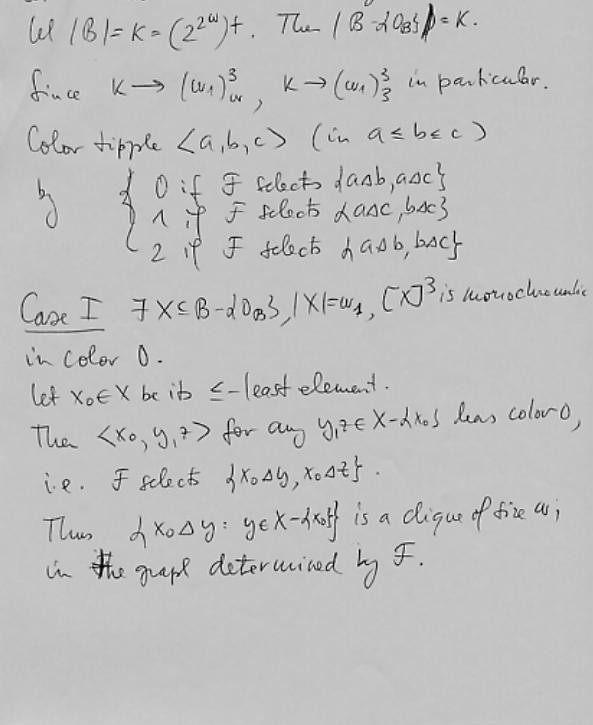 Let |B| = κ = (2^{2^ω})^+. Then |B-{0_B}| = κ.
Since κ → (ω_1)^3_ω, κ → (ω_1)^3_3 in particular.
Color tipple <a,b,c> (in a ≤ b ≤ c)
by { 0 if F selects {aΔb, aΔc}
1 if F selects {aΔc, bΔc}
2 if F selects {aΔb, bΔc}
Case I ∃ X ⊆ B-{0_B}, |X| = ω_1, [X]^3 is monochromatic
in color 0.
Let x_0 ∈ X be its ≤-least element.
Then <x_0, y, z> for any y, z ∈ X-{x_0} has color 0,
i.e. F selects {x_0Δy, x_0Δz}.
Thus {x_0Δy : y ∈ X-{x_0}} is a clique of size ω_1
in the graph determined by F.